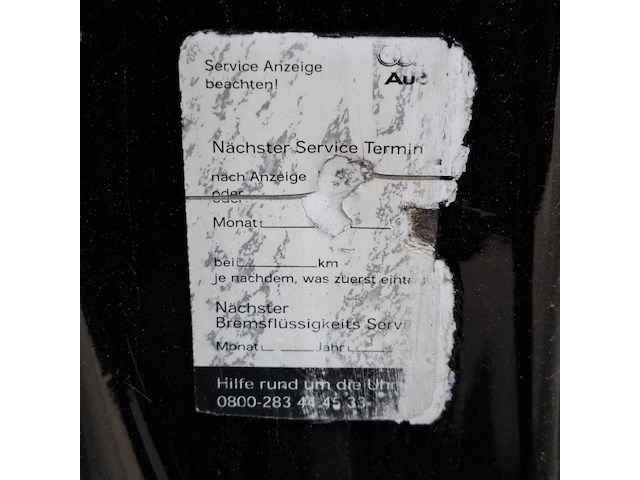 Service Anzeige
beachten!
Aud
Nächster Service Termin
nach Anzeige
oder
Monat
bei km
je nachdem, was zuerst eintri
Nächster
Bremsflüssigkeits Servi
Monat Jahr
Hilfe rund um die Uhr
0800-283 44 45 33